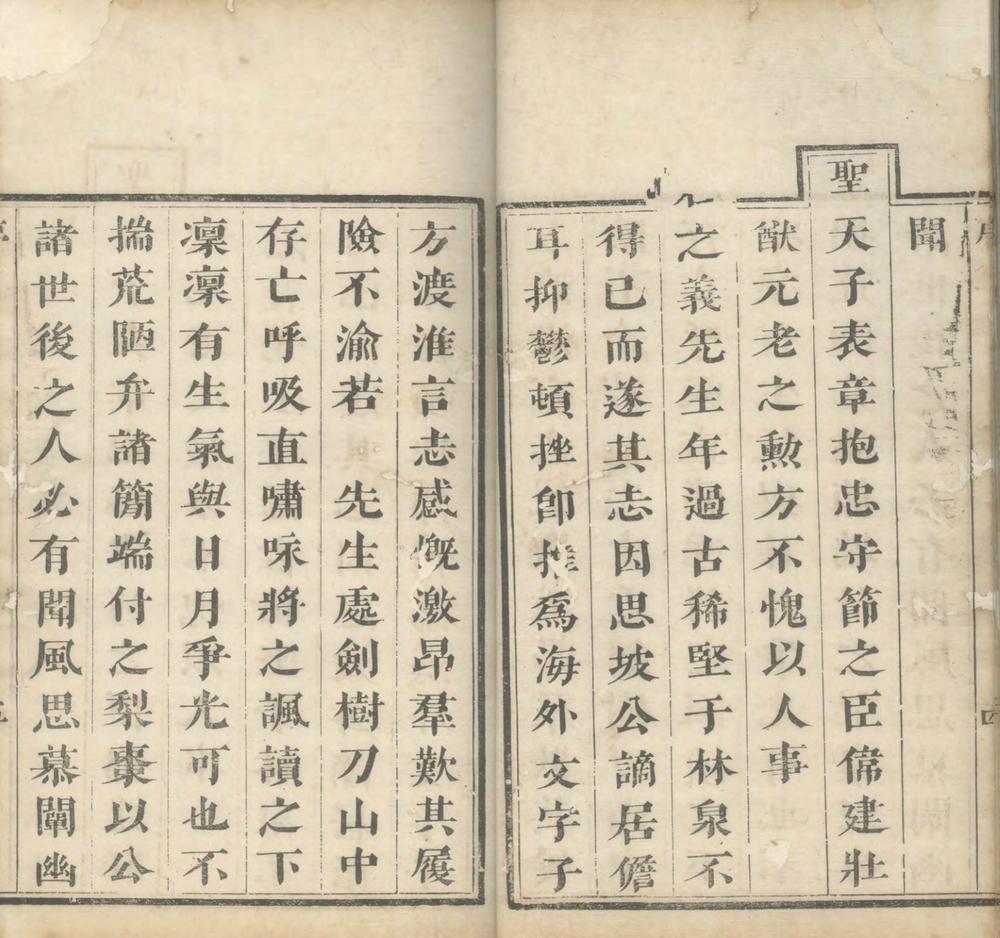 聞
聖天子表章抱忠守節之臣俾建壯
猷元老之勳方不愧以人事
之義先生年過古稀堅于林泉不
得已而遂其志因思坡公謫居儋
耳抑鬱頓挫卽推爲海外文字子
方渡淮言志感慨激昂羣歎其履
險不渝若先生處劍樹刀山中
存亡呼吸直嘯咏將之諷讀之下
凜凜有生氣與日月爭光可也不
揣荒陋弁諸簡端付之梨棗以公
諸世後之人必有聞風思慕闡幽